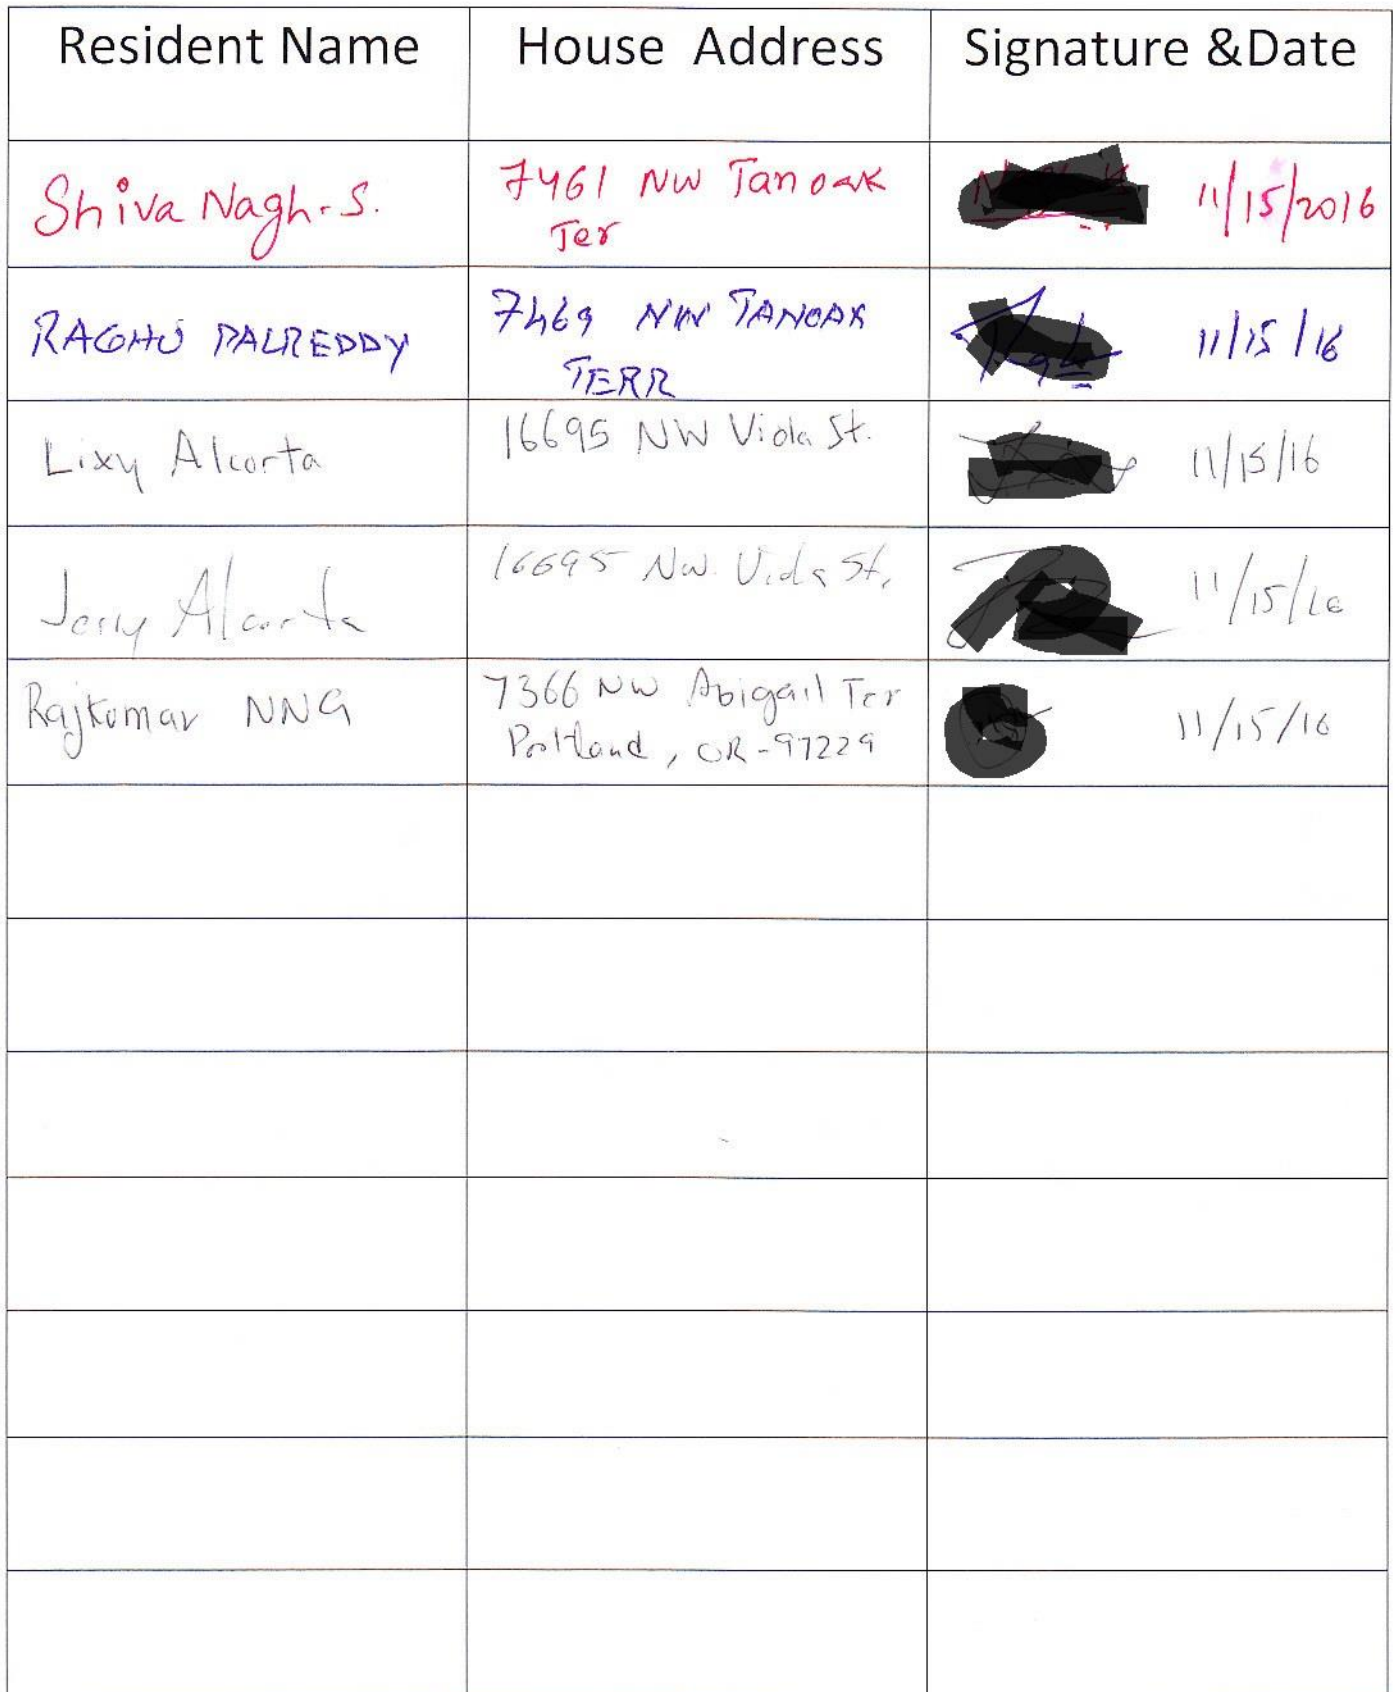 Resident Name House Address Signature &Date
Shiva Nagh. S. 7461 NW Tanoak 11/15/2016
Ter
RAGHU PALREDDY 7469 NW TANOAK 11/15/16
TERR
Lixy Alcorta 16695 NW Viola St. 11/15/16
Jerry Alcorta 16695 NW. Viola St, 11/15/16
Rajkumar NNG 7366 NW Abigail Ter 11/15/16
Portland, OR-97229